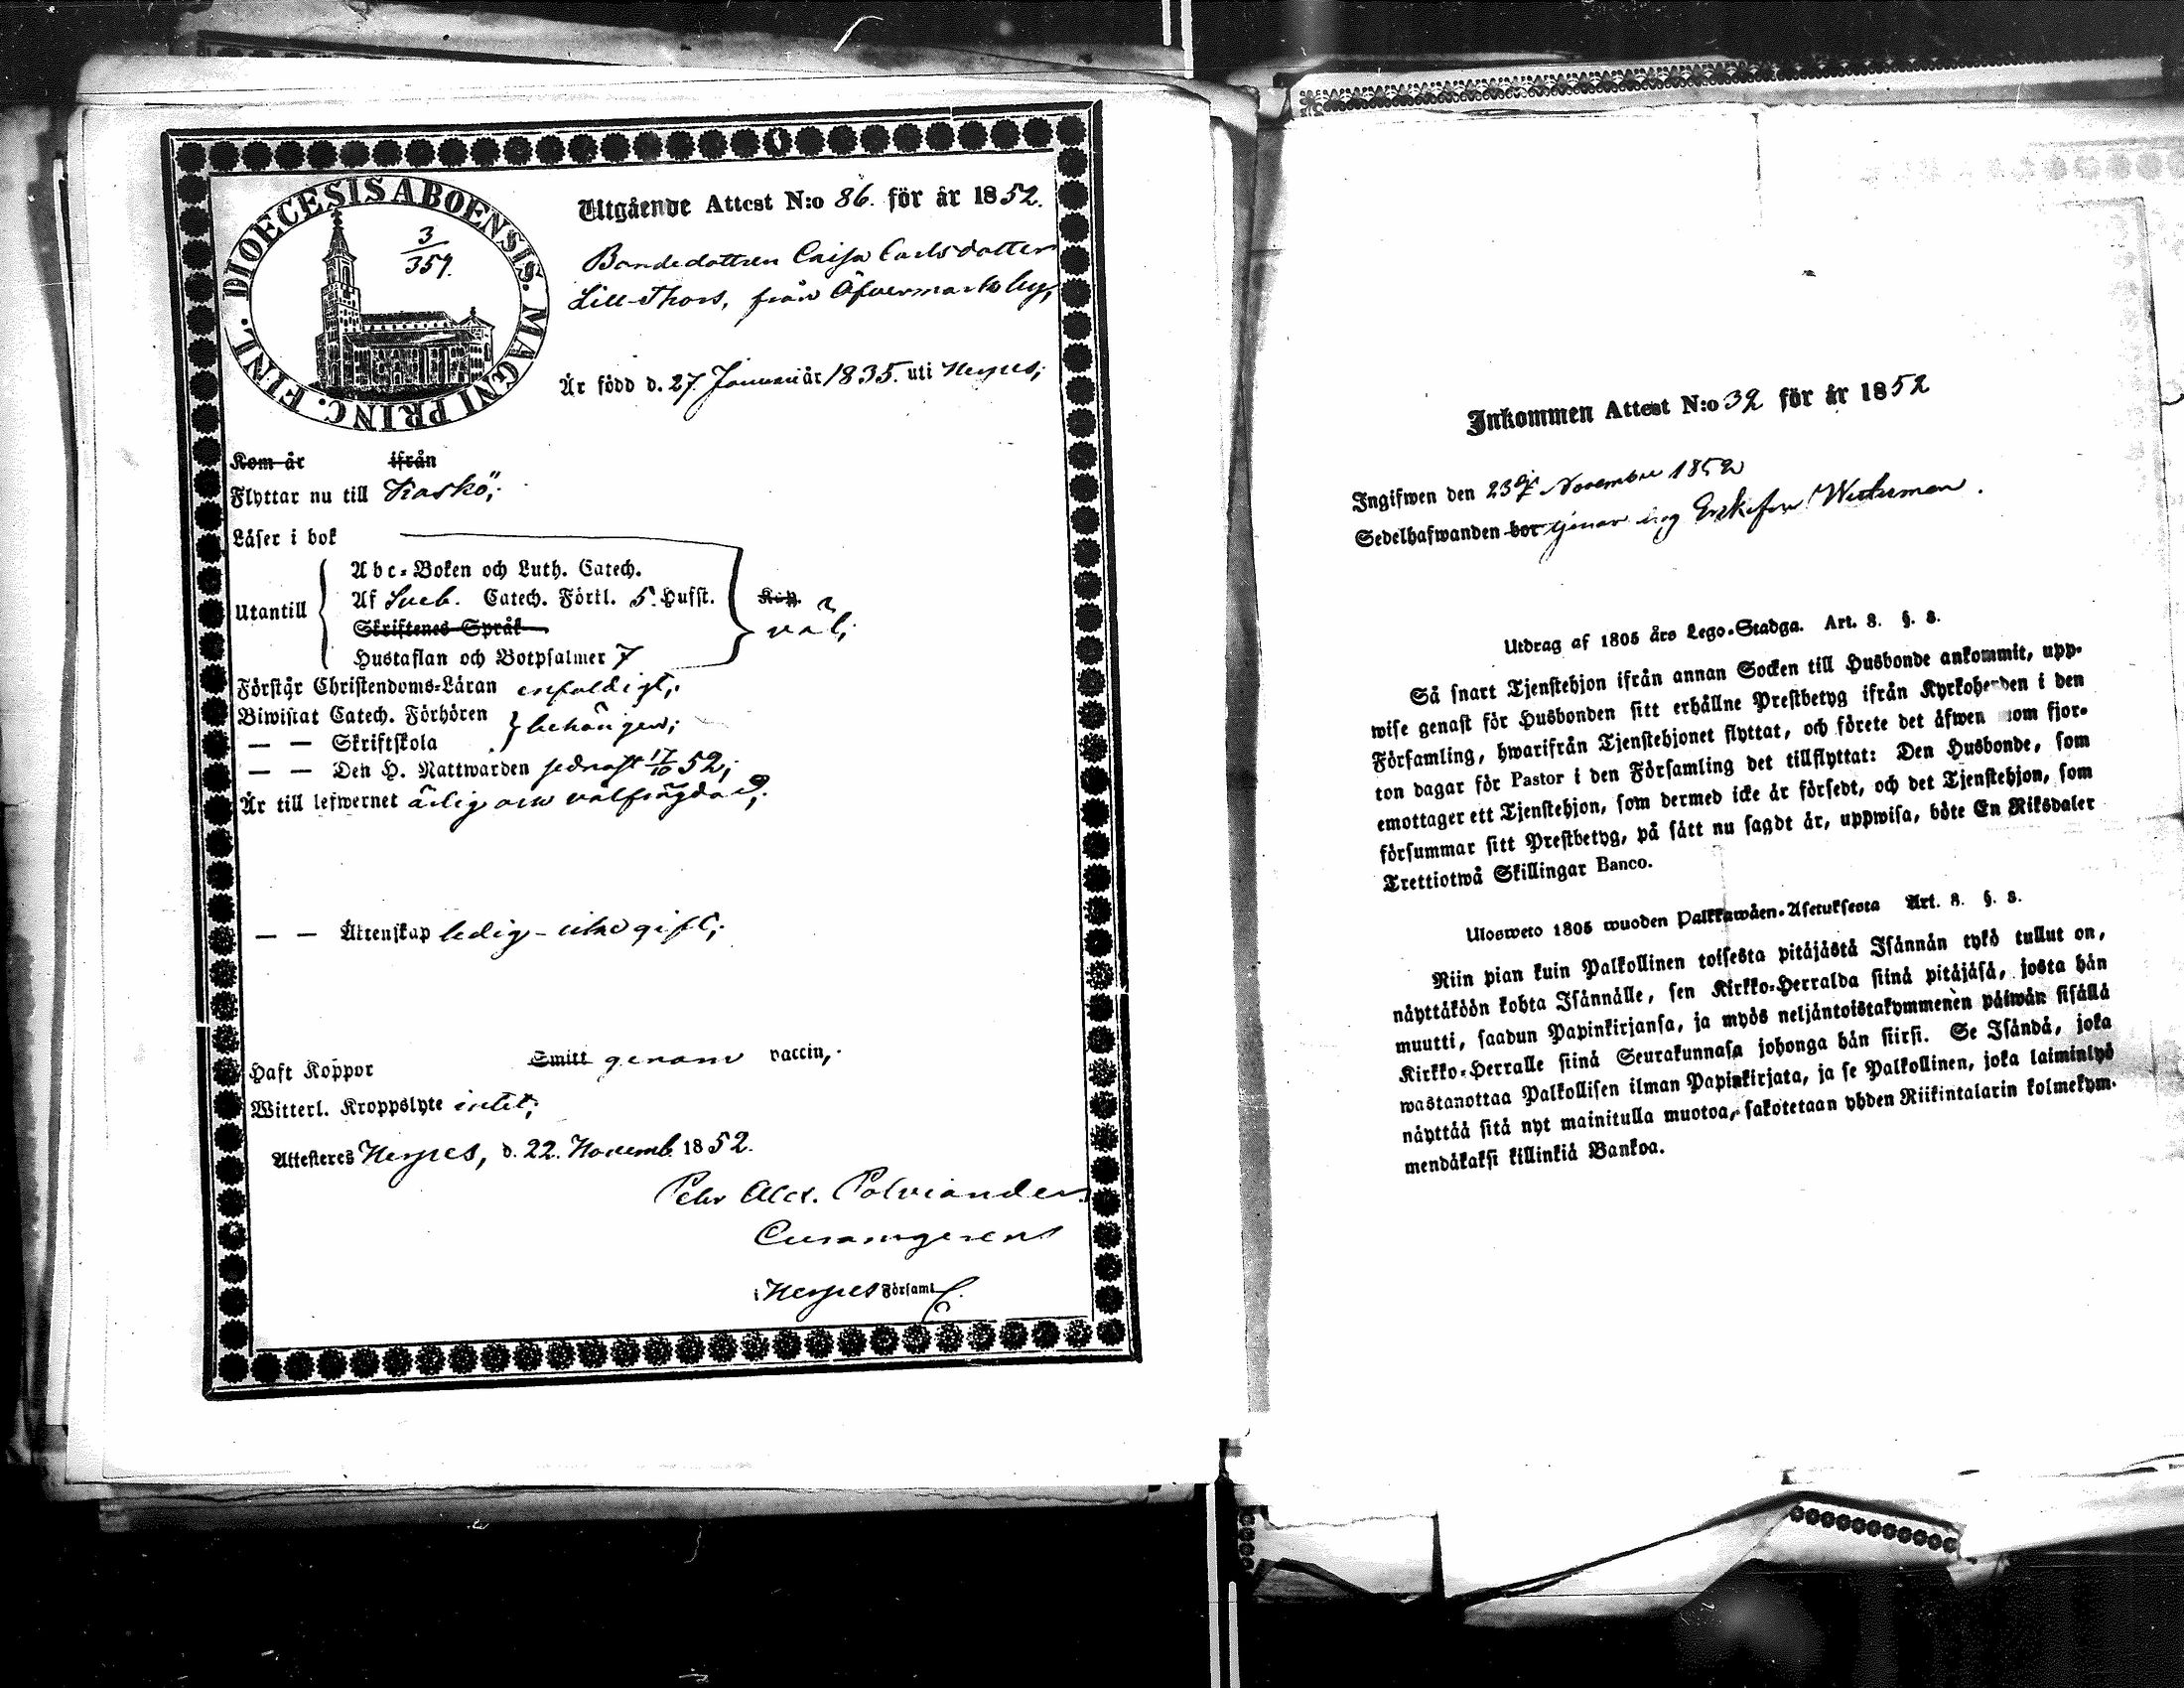 DIOECESIS ABOENSIS. MAGNI PRINC. FINL.
3
359.
Utgående Attest N:o 86. för år 1852.
Bondedottren Caisa Carlsdotter
Lill-Thors, från Öfvermark by,
Är född d. 27. Januari år 1835. uti Nerpes;
Kom år ifrån
Flyttar nu till Kaskö;
Läser i bok
Utantill
Abc-Boken och Luth. Catech.
Af Sveb. Catech. Förkl. 5. Hufst.
Skriftenes Språk
Hustaflan och Botpsalmer 7
Köp.
väl;
Förstår Christendoms-Läran enfaldigt;
Biwistat Catech. Förhören
— — Skriftskola
behörigen;
— — Den H. Nattwarden sednast 17/10 52;
Är till lefwernet ärlig och välfrägdad;
— — Äktenskap ledig - icke gift;
Haft Koppor Smitt genom vaccin;
Witterl. Kroppslyte intet;
Attesteres Nerpes, d. 22. Novemb. 1852.
Pehr Alex. Polviander.
Curamgerens
i Nerpes Församl.
Inkommen Attest N:o 32 för år 1852
Ingifwen den 23 November 1852
Sedelhafwanden bor tjenar hos Enkefru Westerman.
Utdrag af 1805 års Lego-Stadga. Art. 8. §. 8.
Så snart Tjenstehjon ifrån annan Socken till Husbonde ankommit, upp-
wise genast för Husbonden sitt erhållne Prestbetyg ifrån Kyrkoherden i den
Församling, hwarifrån Tjenstehjonet flyttat, och förete det äfwen inom fjor-
ton dagar för Pastor i den Församling det tillflyttat: Den Husbonde, som
emottager ett Tjenstehjon, som dermed icke är försedt, och det Tjenstehjon, som
försummar sitt Prestbetyg, på sätt nu sagdt är, uppwisa, böte En Riksdaler
Trettiotwå Skillingar Banco.
Ulosweto 1805 wuoden Palkkawäen-Asetuksesta Art. 8. §. 8.
Niin pian kuin Palkollinen toisesta pitäjästä Isännän tykö tullut on,
näyttäköön kohta Isännälle, sen Kirkko-Herralda siinä pitäjäsä, josta hän
muutti, saadun Papinkirjansa, ja myös neljäntoistakymmenen päiwän sisällä
Kirkko-Herralle siinä Seurakunnasa johonga hän siirsi. Se Isändä, joka
wastanottaa Palkollisen ilman Papinkirjata, ja se Palkollinen, joka laiminlyö
näyttää sitä nyt mainitulla muotoa, sakotetaan yhden Riikintalarin kolmekym-
mendäkaksi killinkiä Bankoa.